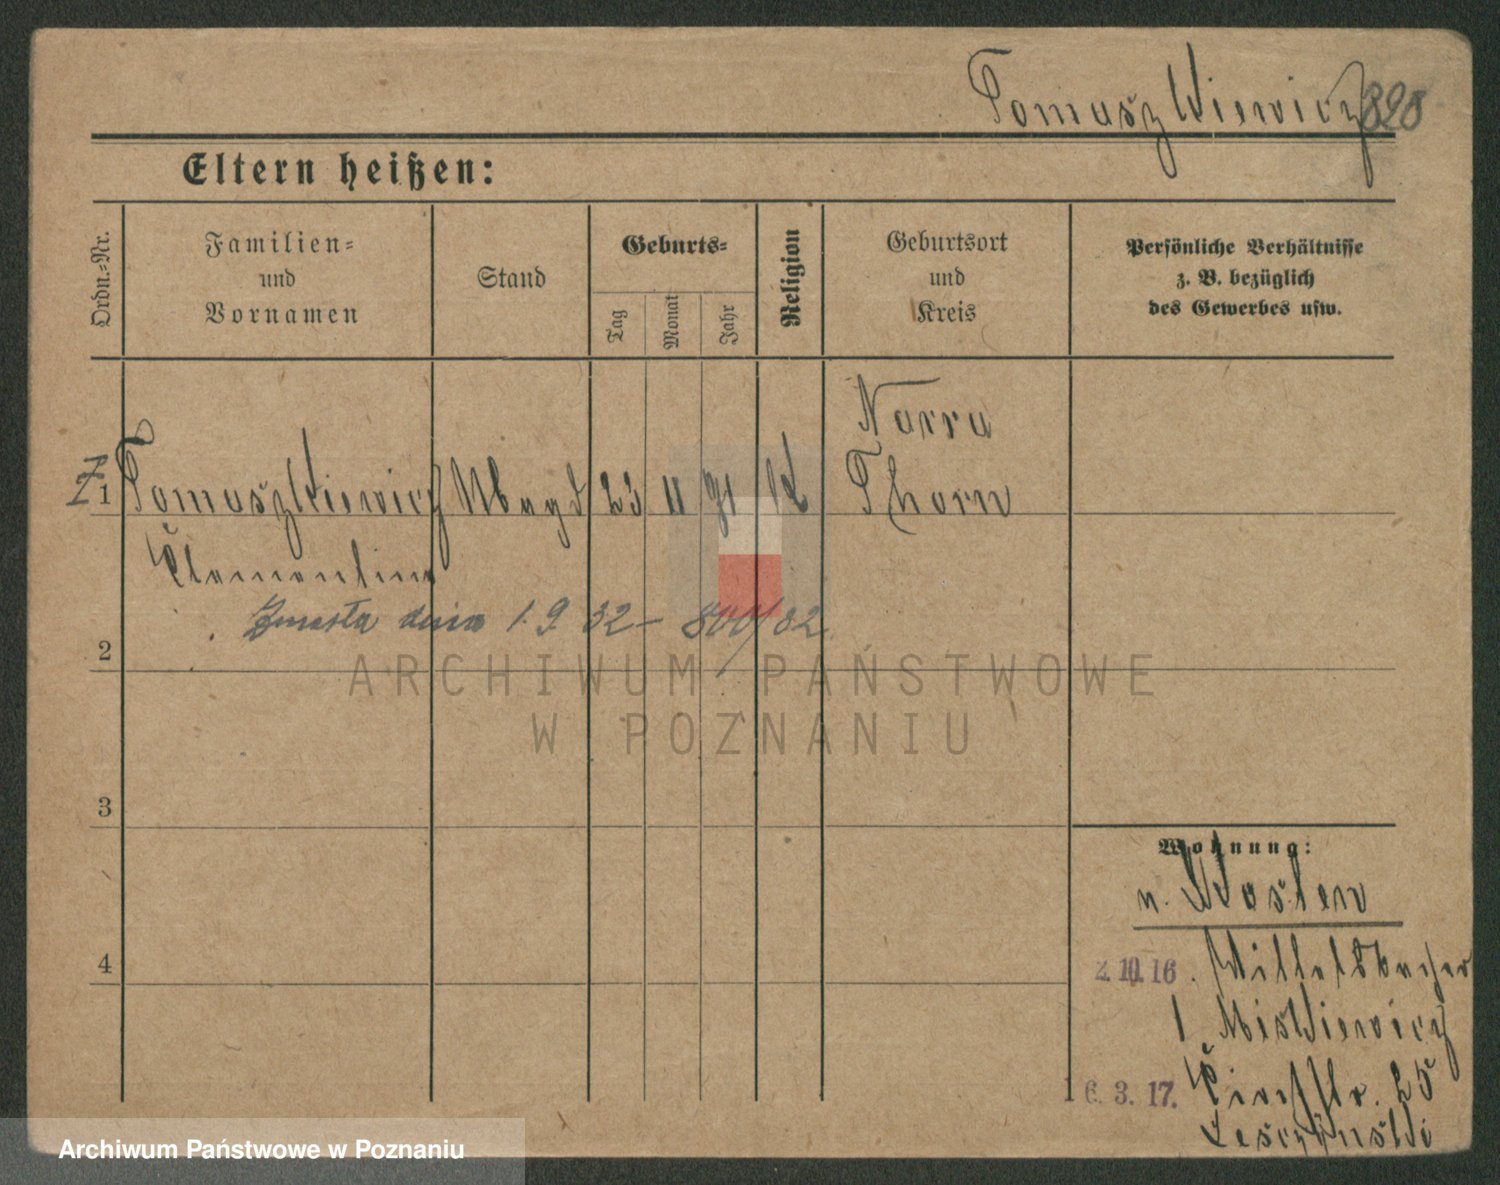 Tomaszkiewicz 828
Eltern heißen:
Ordn.=Nr.
Familien=
und
Vornamen
Stand
Geburts=
Tag
Monat
Jahr
Religion
Geburtsort
und
Kreis
Persönliche Verhältnisse
z. B. bezüglich
des Gewerbes usw.
Z 1 Tomaszkiewicz Magd 23 11 71 k
Thorn
Clementine
Zmarła dnia 1. 9. 32 — 800/32
2
3
4
Wohnung:
n. Kosten
2. 10. 16. Wittelsbacher
1 Miskiewicz
16. 3. 17. 25
Leszczynski
ARCHIWUM PAŃSTWOWE
W POZNANIU
Archiwum Państwowe w Poznaniu